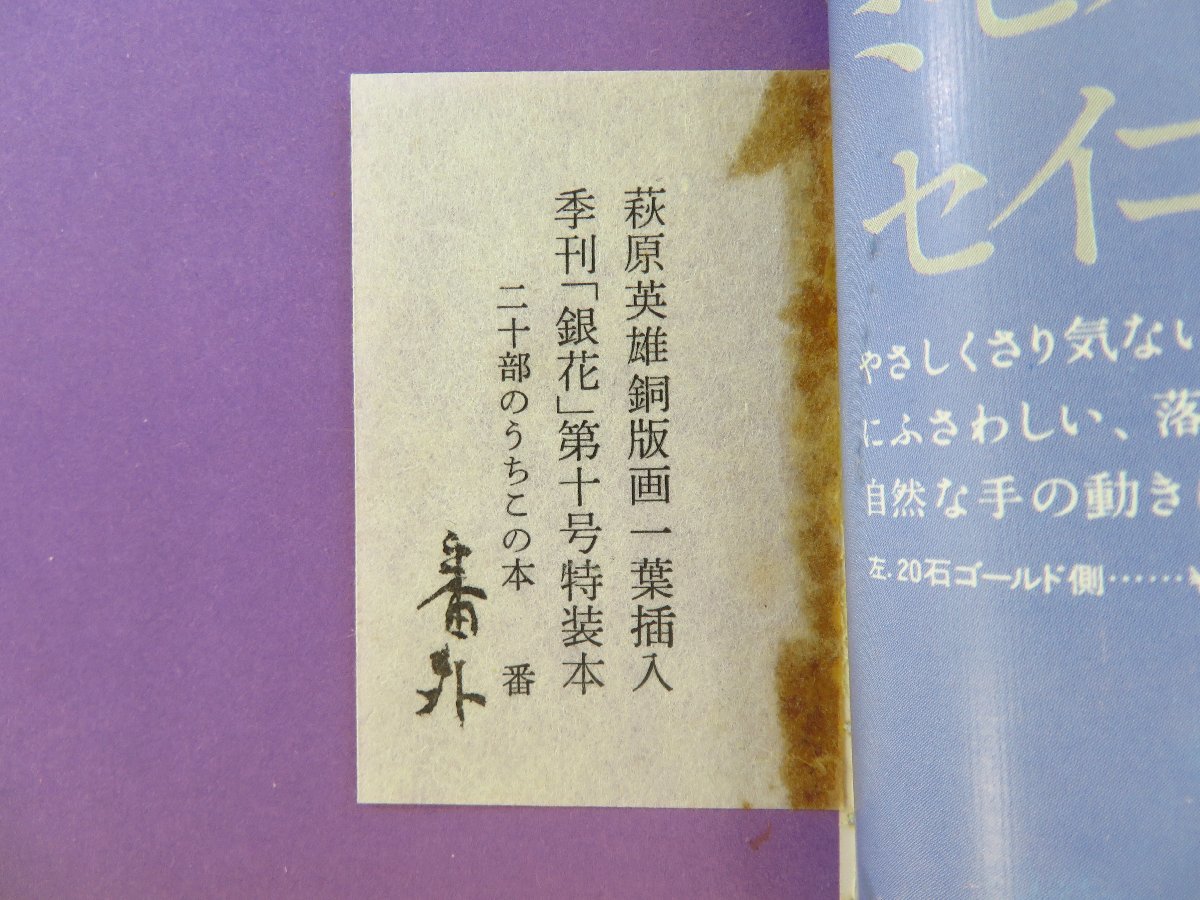 萩原英雄銅版画一葉挿入
季刊「銀花」第十号特装本
二十部のうちこの本　番
番外
セイニ
やさしくさり気ない
にふさわしい、落
自然な手の動き
左.20石ゴールド側……¥